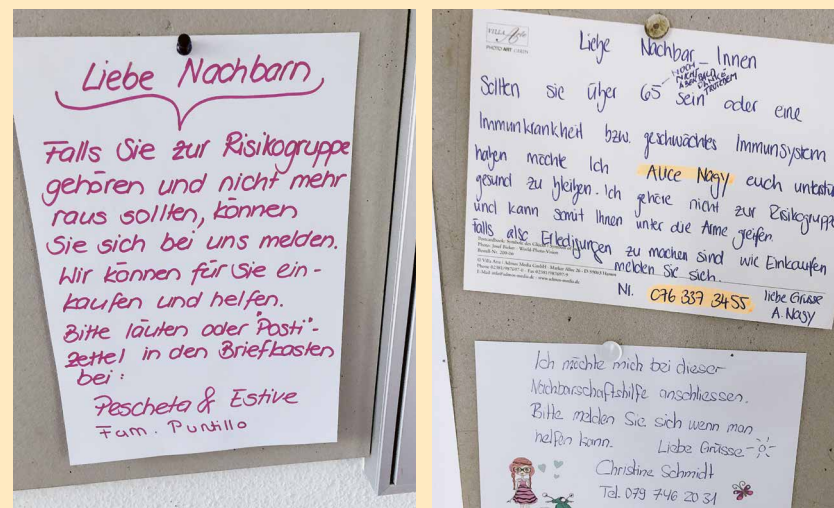 Liebe Nachbarn,
Falls Sie zur Risikogruppe
gehören und nicht mehr
raus sollten, können
Sie sich bei uns melden.
Wir können für Sie ein-
kaufen und helfen.
Bitte läuten oder "Posti"-
zettel in den Briefkasten
bei:
Pescheta & Estive
Fam. Puntillo
VILLA Arte
PHOTO ART CARDS
Liebe Nachbar_Innen
Sollten sie über 65 sein oder eine
NOCH
NICHT
ABER BALD
DANKE
TROTZDEM
Immunkrankheit bzw. geschwächtes Immunsystem
haben möchte Ich Alice Nagy euch
gesund zu bleiben. Ich gehöre nicht zur Risikogruppe
und kann somit Ihnen unter die Arme greifen.
falls also Erledigungen zu machen sind wie Einkaufen
melden Sie sich.
N1. 076 337 3455 liebe Grüsse
A. Nagy
Ich möchte mich bei dieser
Nachbarschaftshilfe anschliessen.
Bitte melden Sie sich wenn man
helfen kann. Liebe Grüsse
Christine Schmidt
Tel. 079 746 20 31